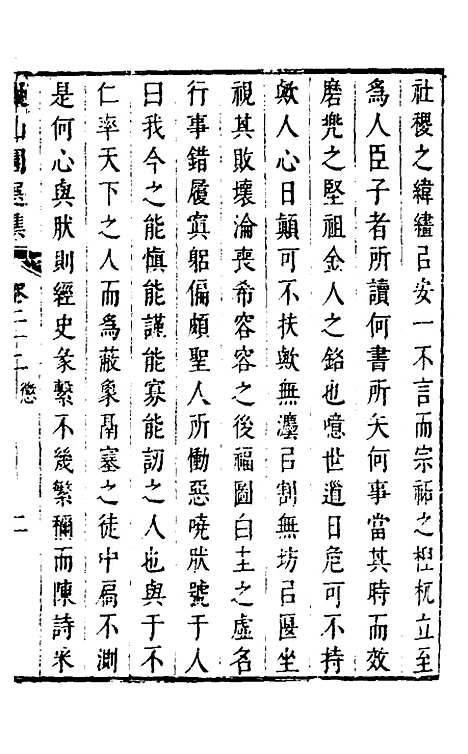 社稷之緯繣㠯安一不言而宗祏之桯杌立至
為人臣子者所讀何書所矢何事當其時而效
磨兠之堅祖金人之銘也噫世道日危可不持
歟人心日顛可不扶歟無灋㠯割無坊㠯匽坐
視其敗壞淪喪希容容之後福圖白圭之虛名
行事錯履寘躬偏頗聖人所慟惡嘵狀號于人
曰我今之能慎能謹能寡能訒之人也與于不
仁率天下之人而為蔽㒸咼塞之徒中扄不測
是何心與肰則經史彖繫不幾繁穪而陳詩釆
山園選集
卷二十二
二